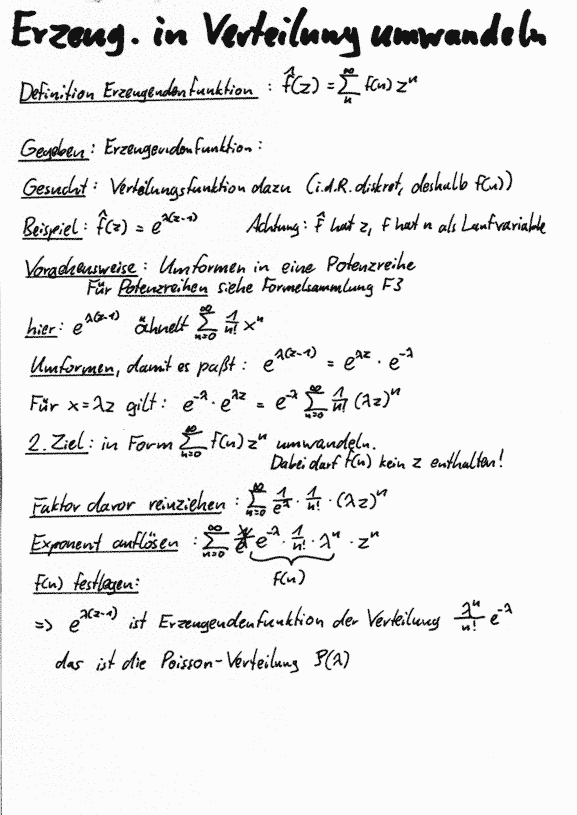 Erzeug. in Verteilung umwandeln
Definition Erzeugendenfunktion : f̂(z) = ∑_n^∞ f(n) z^n
Gegeben : Erzeugendenfunktion :
Gesucht : Verteilungsfunktion dazu (i.d.R. diskret, deshalb f(n))
Beispiel : f̂(z) = e^{λ(z-1)} Achtung : f̂ hat z, f hat n als Laufvariable
Vorgehensweise : Umformen in eine Potenzreihe
Für Potenzreihen siehe Formelsammlung F3
hier : e^{λ(z-1)} ähnelt ∑_{n=0}^∞ 1/n! x^n
Umformen, damit es paßt : e^{λ(z-1)} = e^{λz} · e^{-λ}
Für x=λz gilt : e^{-λ} · e^{λz} = e^{-λ} ∑_{n=0}^∞ 1/n! (λz)^n
2. Ziel : in Form ∑_{n=0}^∞ f(n) z^n umwandeln.
Dabei darf f(n) kein z enthalten!
Faktor davor reinziehen : ∑_{n=0}^∞ 1/e^λ · 1/n! · (λz)^n
Exponent auflösen : ∑_{n=0}^∞ e^{-λ} · 1/n! · λ^n · z^n
f(n) festlegen : f(n)
=> e^{λ(z-1)} ist Erzeugendenfunktion der Verteilung λ^n/n! e^{-λ}
das ist die Poisson-Verteilung P(λ)